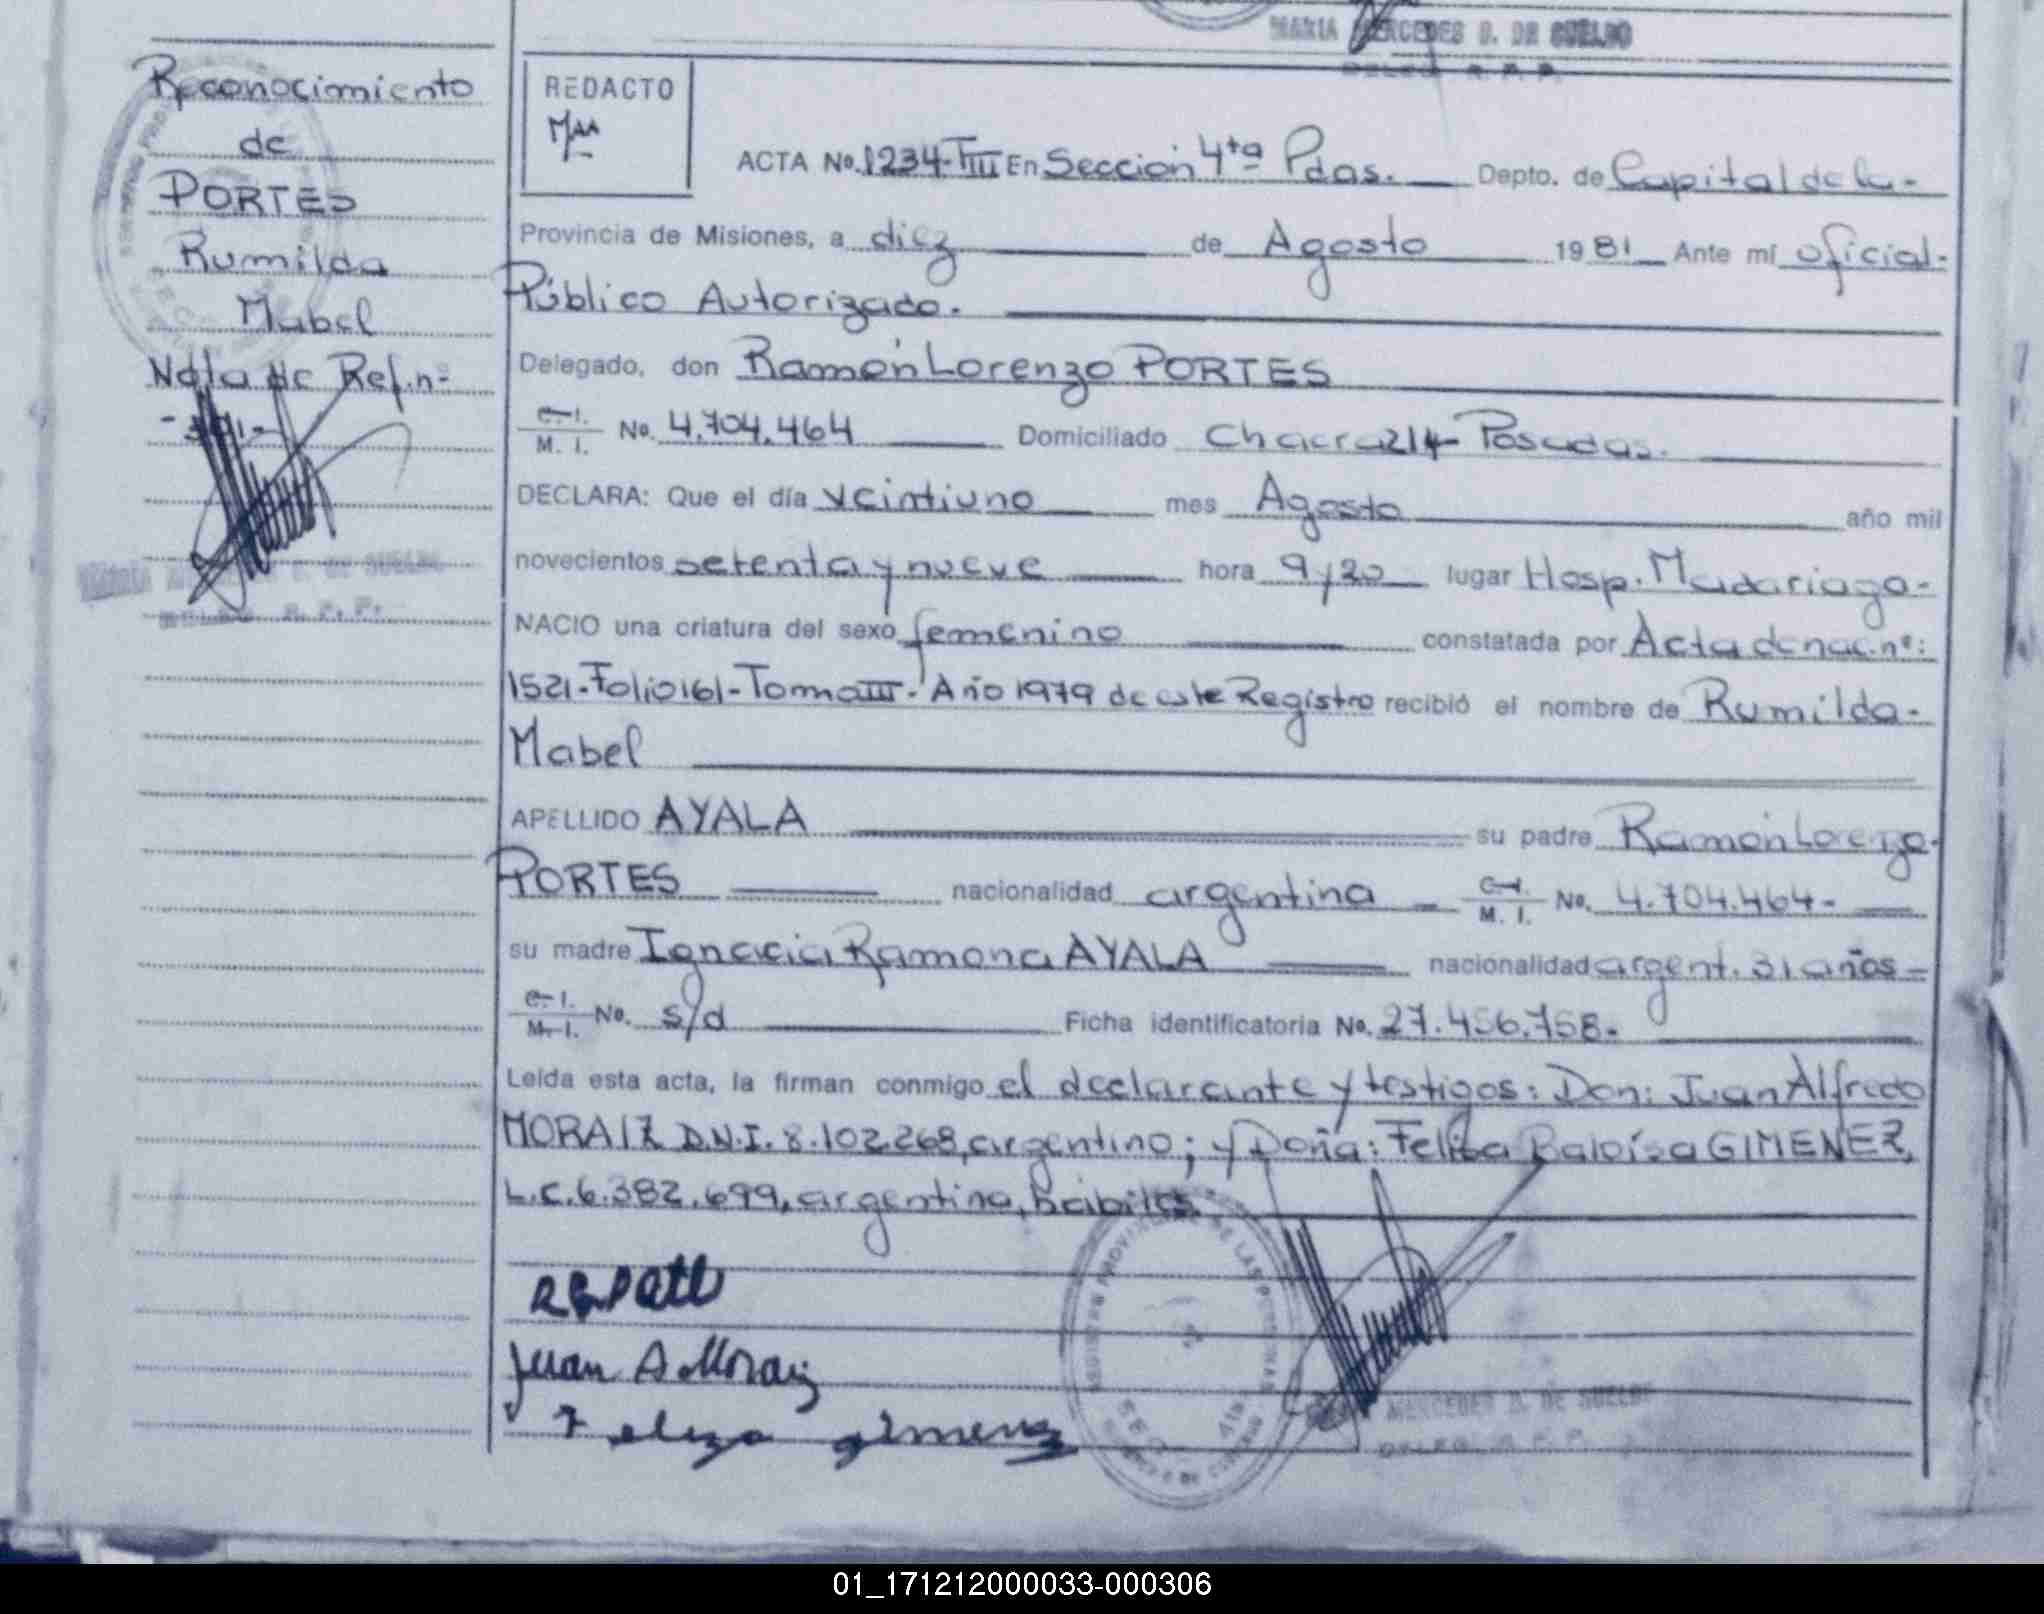 MARIA MERCEDES D. DE SUELDO
Reconocimiento
de
PORTES
Rumilda
Mabel
Nota de Ref. nº
REDACTO
ACTA No. 1234-TIII En Sección 4ta Pdas. Depto. de Capital de la-
Provincia de Misiones, a diez de Agosto 1981 Ante mí oficial-
Público Autorizado.
Delegado, don Ramón Lorenzo PORTES
C. I. / M. I. No. 4.704.464 Domiciliado Chacra 214- Posadas.
DECLARA: Que el día veintiuno mes Agosto año mil
novecientos setenta y nueve hora 9 y 20 lugar Hosp. Madariaga-
NACIO una criatura del sexo femenino constatada por Acta de nac. nº:
1521-Folio 161-Tomo III-Año 1979 de este Registro recibió el nombre de Rumilda-
Mabel
APELLIDO AYALA su padre Ramón Lorenzo-
PORTES nacionalidad argentina C. I. / M. I. No. 4.704.464-
su madre Ignacia Ramona AYALA nacionalidad argent. 31 años-
C. I. / M. I. No. s/d Ficha identificatoria No. 27.456.758-
Leída esta acta, la firman conmigo el declarante y testigos: Don: Juan Alfredo
MORAIZ D.N.I. 8.102.268, argentino; y Doña: Feliza GIMENEZ,
L.C. 6.382.699, argentina, hábiles.
Juan A Moraiz
Feliza gimenez
MERCEDES D. DE SUELDO
01_171212000033-000306